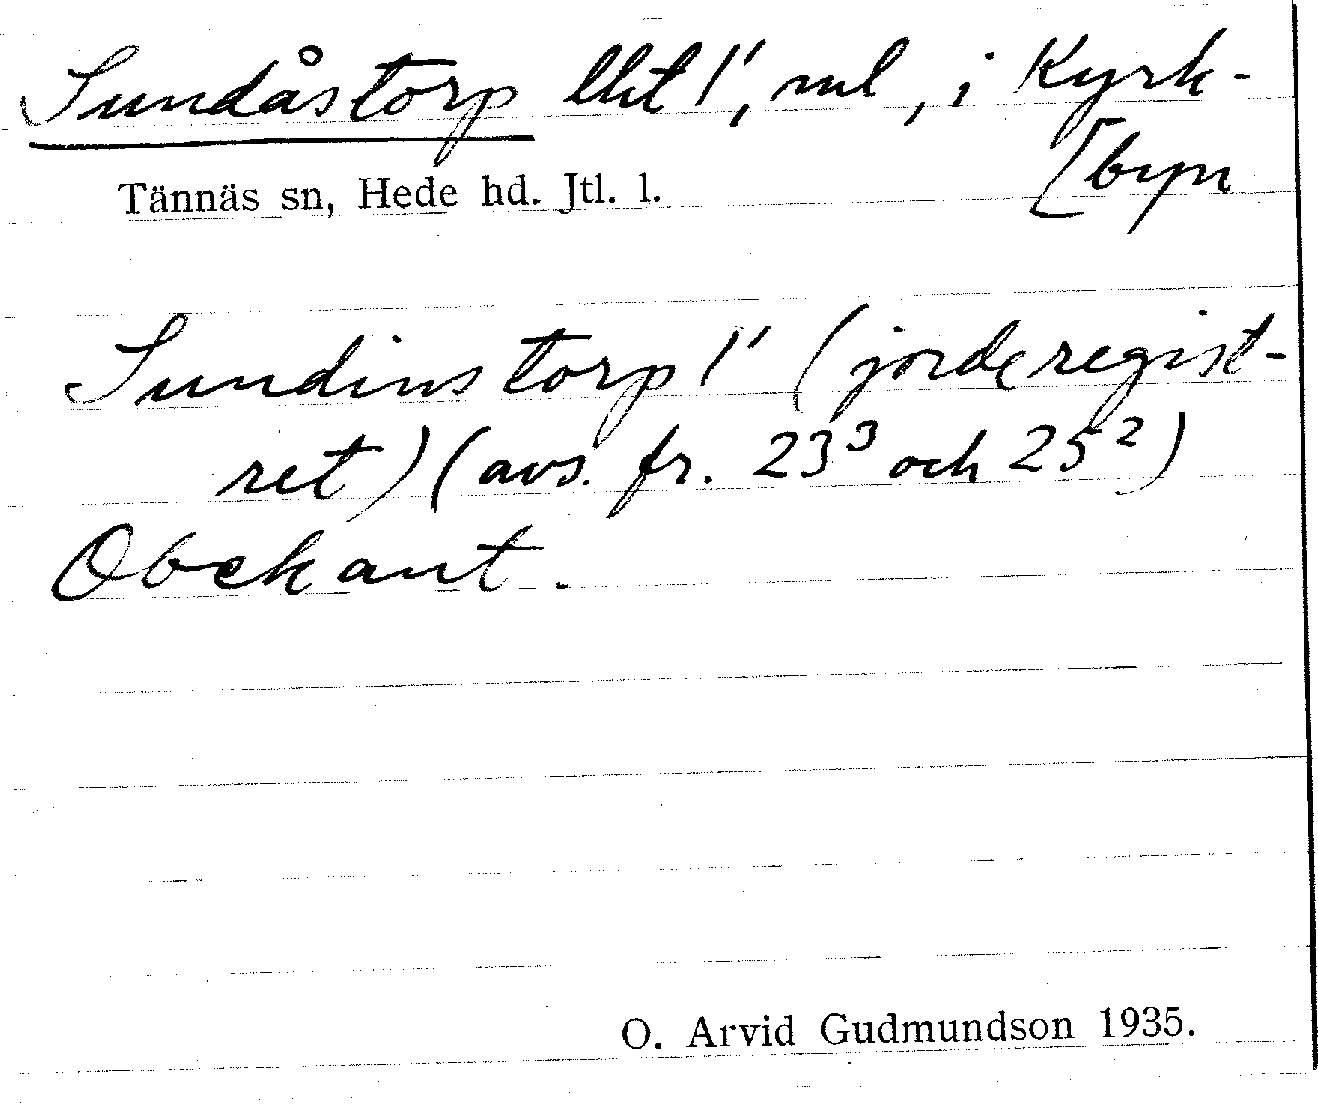 Sundåstorp lht 1', ml, i Kyrk-
[byn
Tännäs sn, Hede hd. Jtl. l.
Sundinstorp 1' (jorderegist-
ret) (avs. fr. 23³ och 25²)
Obekant.
O. Arvid Gudmundson 1935.